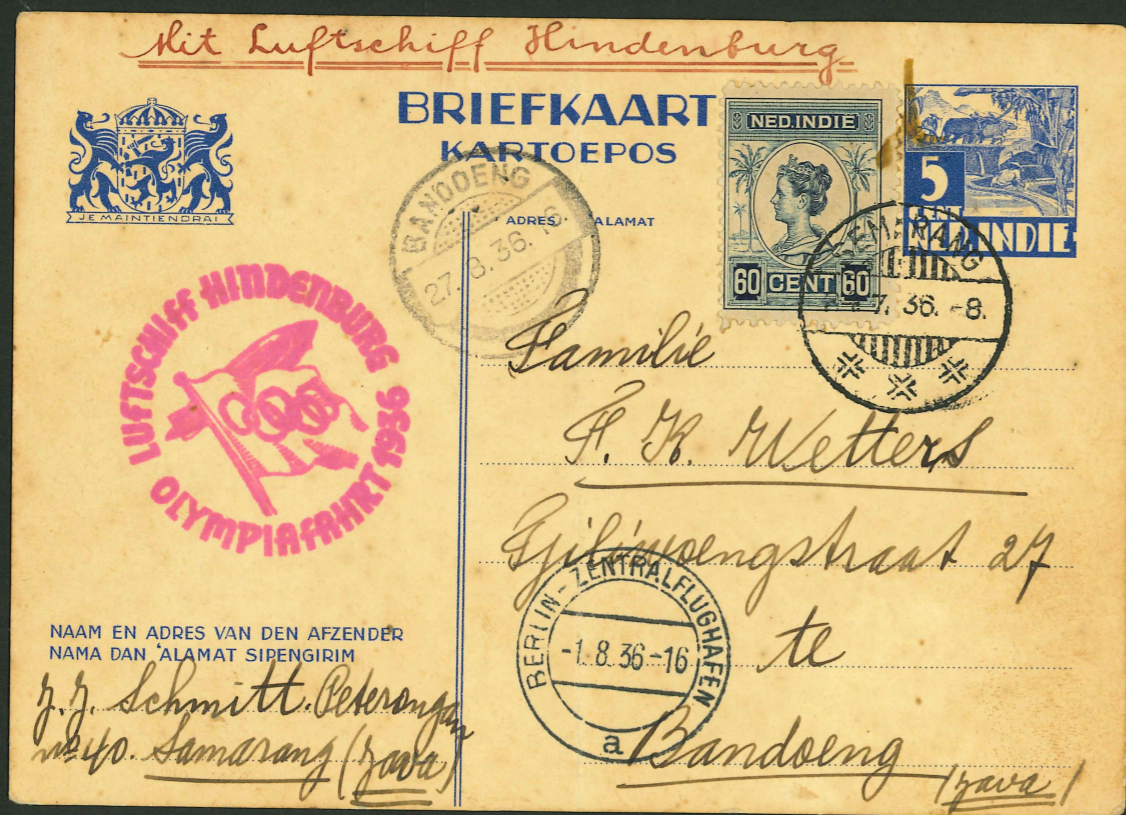 Mit Luftschiff Hindenburg
BRIEFKAART
KARTOEPOS
JE MAINTIENDRAI
NED.INDIE
60 CENT 60
5
CENT
NED.INDIE
BANDOENG
27.8.36.
ADRES ALAMAT
SEMARANG
7. 36. -8.
LUFTSCHIFF HINDENBURG 1936
OLYMPIAFAHRT
Familie
F. K. Wetters
Tjiliwoengstraat 27
te
Bandoeng
(Java)
BERLIN-ZENTRALFLUGHAFEN
-1.8.36-16
a
NAAM EN ADRES VAN DEN AFZENDER
NAMA DAN 'ALAMAT SIPENGIRIM
J. J. Schmitt. Peterongan
No 40. Samarang (Java)